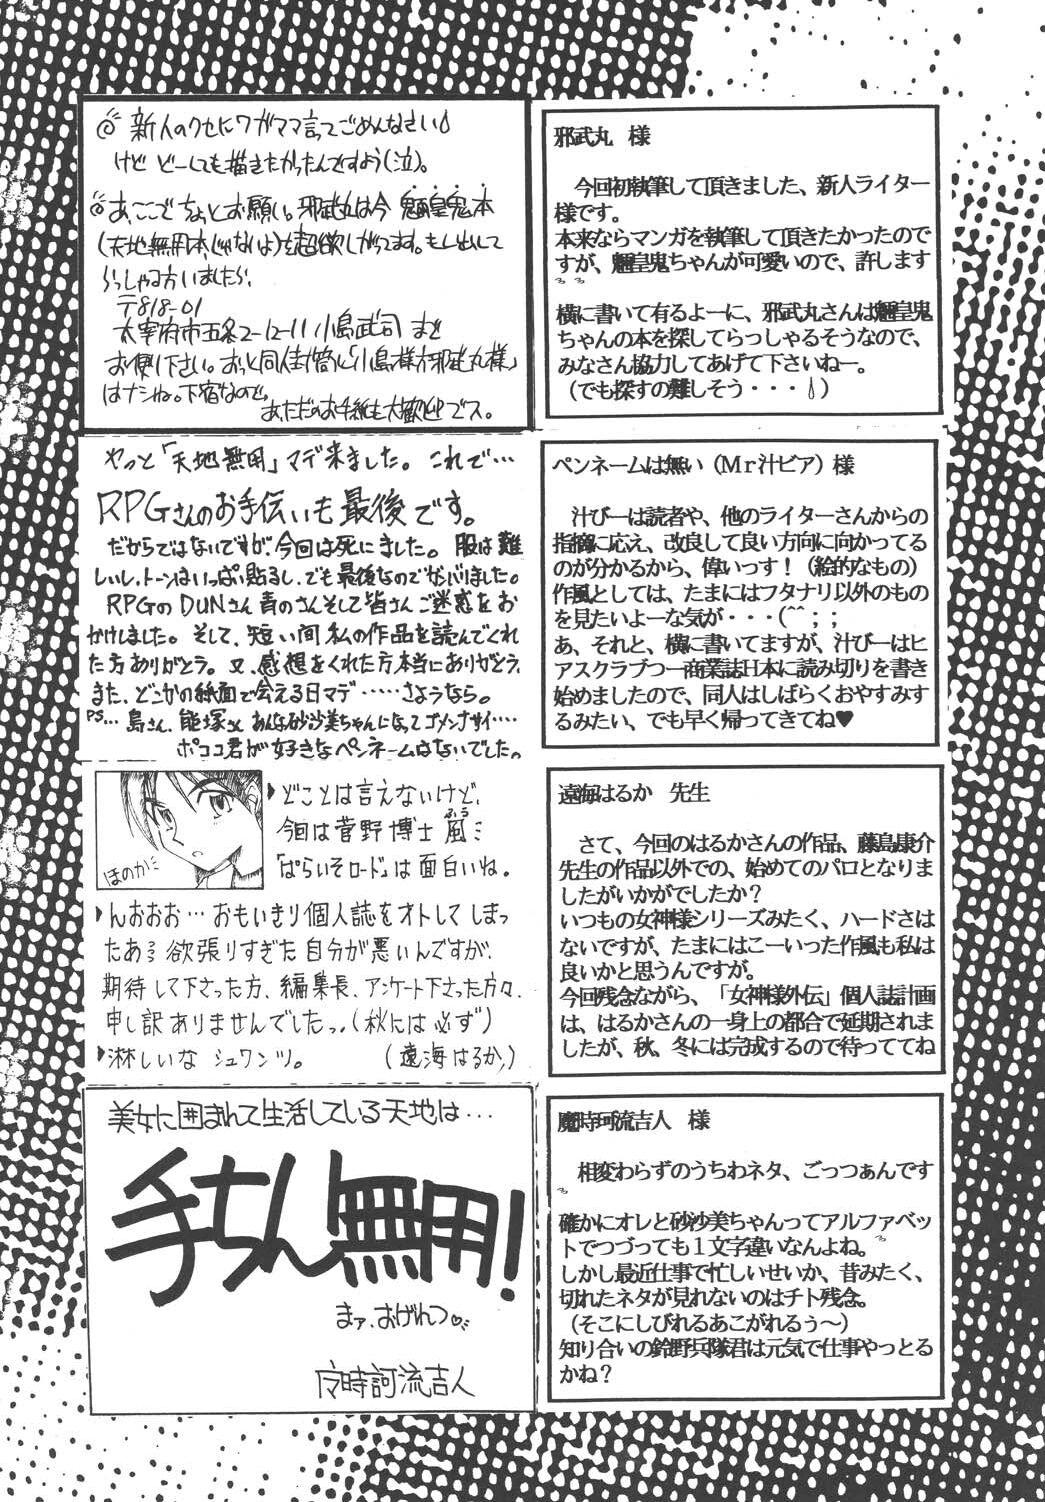 新人のクセにワガママ言ってごめんなさい
けど どーしても描きたかったんですよう(泣)。
あ、ここでちょっとお願い。邪武丸は今 魎皇鬼本
(天地無用本じゃないよ)を超欲しがってます。もし出して
らっしゃる方いましたら、
お便り下さい。あっと同人封筒に「小島様方邪武丸様」
はナシね。下宿なので。
あ、ただのお手紙も大歓迎デス。
邪武丸 様
今回初執筆して頂きました、新人ライター
様です。
本来ならマンガを執筆して頂きたかったので
すが、魎皇鬼ちゃんが可愛いので、許します
横に書いて有るよーに、邪武丸さんは魎皇鬼
ちゃんの本を探してらっしゃるそうなので、
みなさん協力してあげて下さいねー。
(でも探すの難しそう・・・)
やっと「天地無用」マデ来ました。これで…
RPGさんのお手伝いも最後です。
だからではないですが今回は死にました。服は難
しいし、トーンはいっぱい貼るし、でも最後なのでガンバリました。
RPGのDUNさん青のさんそして皆さんご迷惑をお
かけしました。そして、短い間私の作品を読んでくれ
た方ありがとう。又、感想をくれた方本当にありがとう。
また、どこかの紙面で会える日マデ……さようなら。
PS… 島さん、熊塚さん あんな砂沙美ちゃんになってゴメンナサイ…
ポココ君が好きなペンネームはないでした。
ペンネームは無い(Mr汁ビア)様
汁びーは読者や、他のライターさんからの
指摘に応え、改良して良い方向に向かってる
のが分かるから、偉いっす!(絵的なもの)
作風としては、たまにはフタナリ以外のもの
を見たいよーな気が・・・(^^;;
あ、それと、横に書いてますが、汁びーはヒ
アスクラブつー商業誌日本に読み切りを書き
始めましたので、同人はしばらくおやすみす
るみたい、でも早く帰ってきてね♥
ほのか
どことは言えないけど、
今回は菅野博士風ミ
ふう
「ぱらいそロード」は面白いね。
んおおお… おもいきり個人誌をオトしてしまっ
たあ 欲張りすぎた自分が悪いんですが、
期待して下さった方、編集長、アンケート下さった方々、
申し訳ありませんでしたっ。(秋には必ず)
淋しいな シュワンツ。 (遠海はるか)
遠海はるか 先生
さて、今回のはるかさんの作品、藤島康介
先生の作品以外での、始めてのパロとなりま
したがいかがでしたか?
いつもの女神様シリーズみたく、ハードさは
ないですが、たまにはこーいった作風も私は
良いかと思うんですが。
今回残念ながら、「女神様外伝」個人誌計画
は、はるかさんの一身上の都合で延期されま
したが、秋、冬には完成するので待っててね
美女に囲まれて生活している天地は…
手ちん無用!
まァ、おげれつ♡
魔時珂流吉人 様
相変わらずのうちわネタ、ごっつぁんです
確かにオレと砂沙美ちゃんってアルファベッ
トでつづっても1文字違いなんよね。
しかし最近仕事で忙しいせいか、昔みたく、
切れたネタが見れないのはチト残念。
(そこにしびれるあこがれるぅ〜)
知り合いの鈴野兵隊君は元気で仕事やっとる
かね?